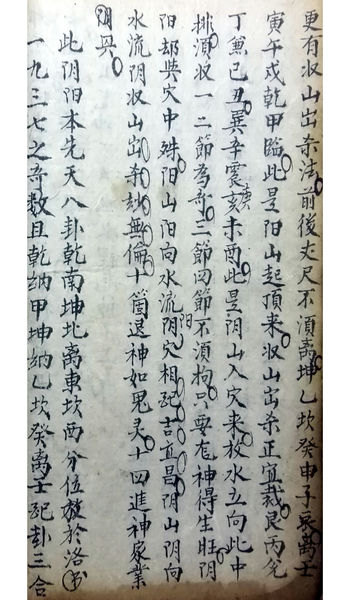 更有收山出杀法前後丈尺不湏离坤乙坎癸申子辰离壬
寅午戌乾甲臨此是阳山起頂来収山出杀正宜裁艮丙兌
丁兼已丑巽辛震庚亥未酉此是阴山入穴来放水立向此中
排湏収一二節為奇三節四節不湏拘只要龙神得生旺阴
阳却與穴中殊阳山阳向水流阳阴穴相配吉直昌阴山阴向
水流阴収山出杀妙無倫十箇退神如鬼灵十四進神家業
阴兴
此阴阳本先天八卦乾南坤北离東坎西分位放於洛书
一九三七之奇数且乾納甲坤納乙坎癸离壬配卦三合